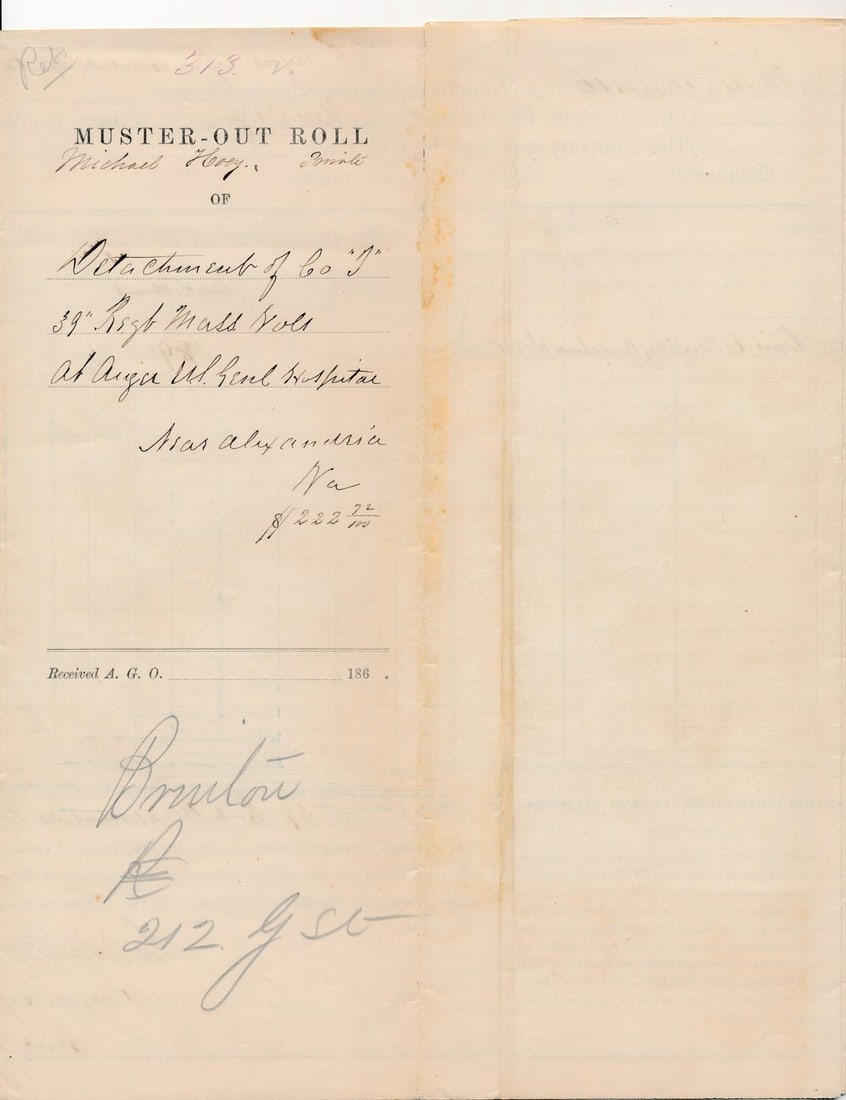 Ret
313. V.
MUSTER-OUT ROLL
Michael Hoey. Private
OF
Detachment of Co "I"
39" Regt Mass Vols
At Auger US. Genl Hospital
Near Alexandria
Va
$222 72/100
Received A. G. O. 186 .
212. G St